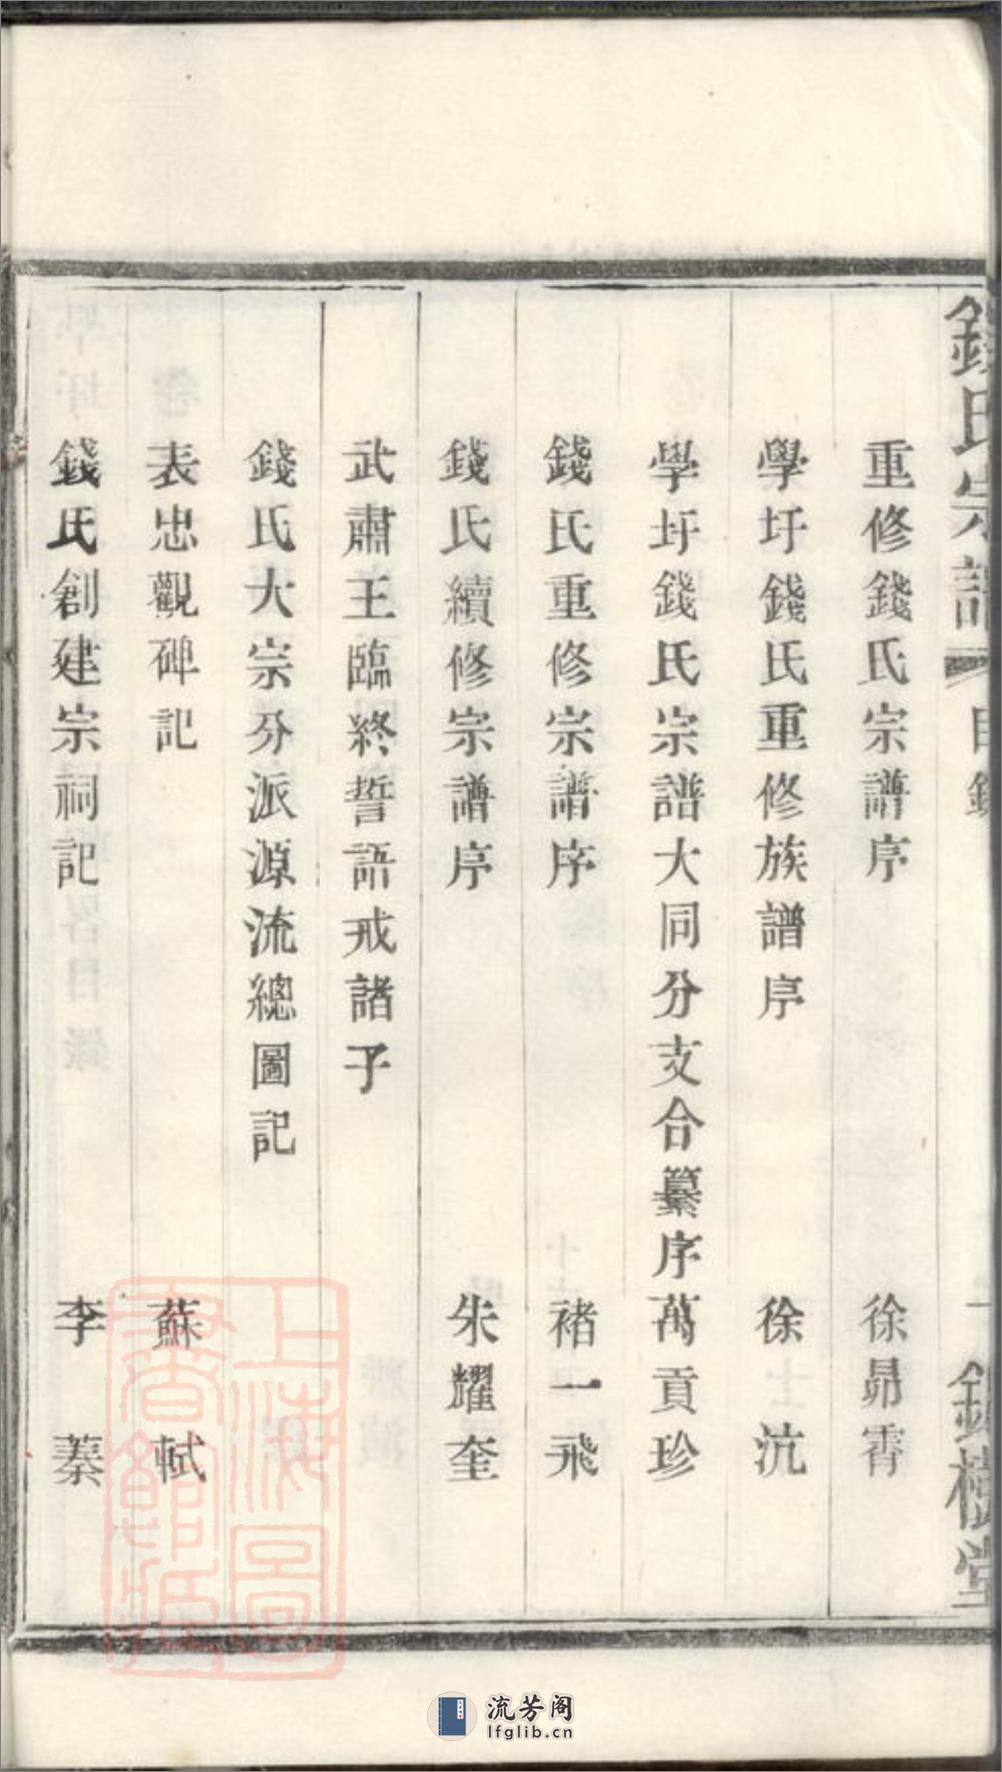 錢氏宗譜 目錄 一 錦樹堂
重修錢氏宗譜序 徐昴霄
學圩錢氏重修族譜序 徐沆
學圩錢氏宗譜大同分支合纂序 萬貢珍
錢氏重修宗譜序 褚一飛
錢氏續修宗譜序 朱耀奎
武肅王臨終誓語戒諸子
錢氏大宗分派源流總圖記
表忠觀碑記 蘇軾
錢氏創建宗祠記 李蓁
上海圖書館藏
流芳阁
lfglib.cn